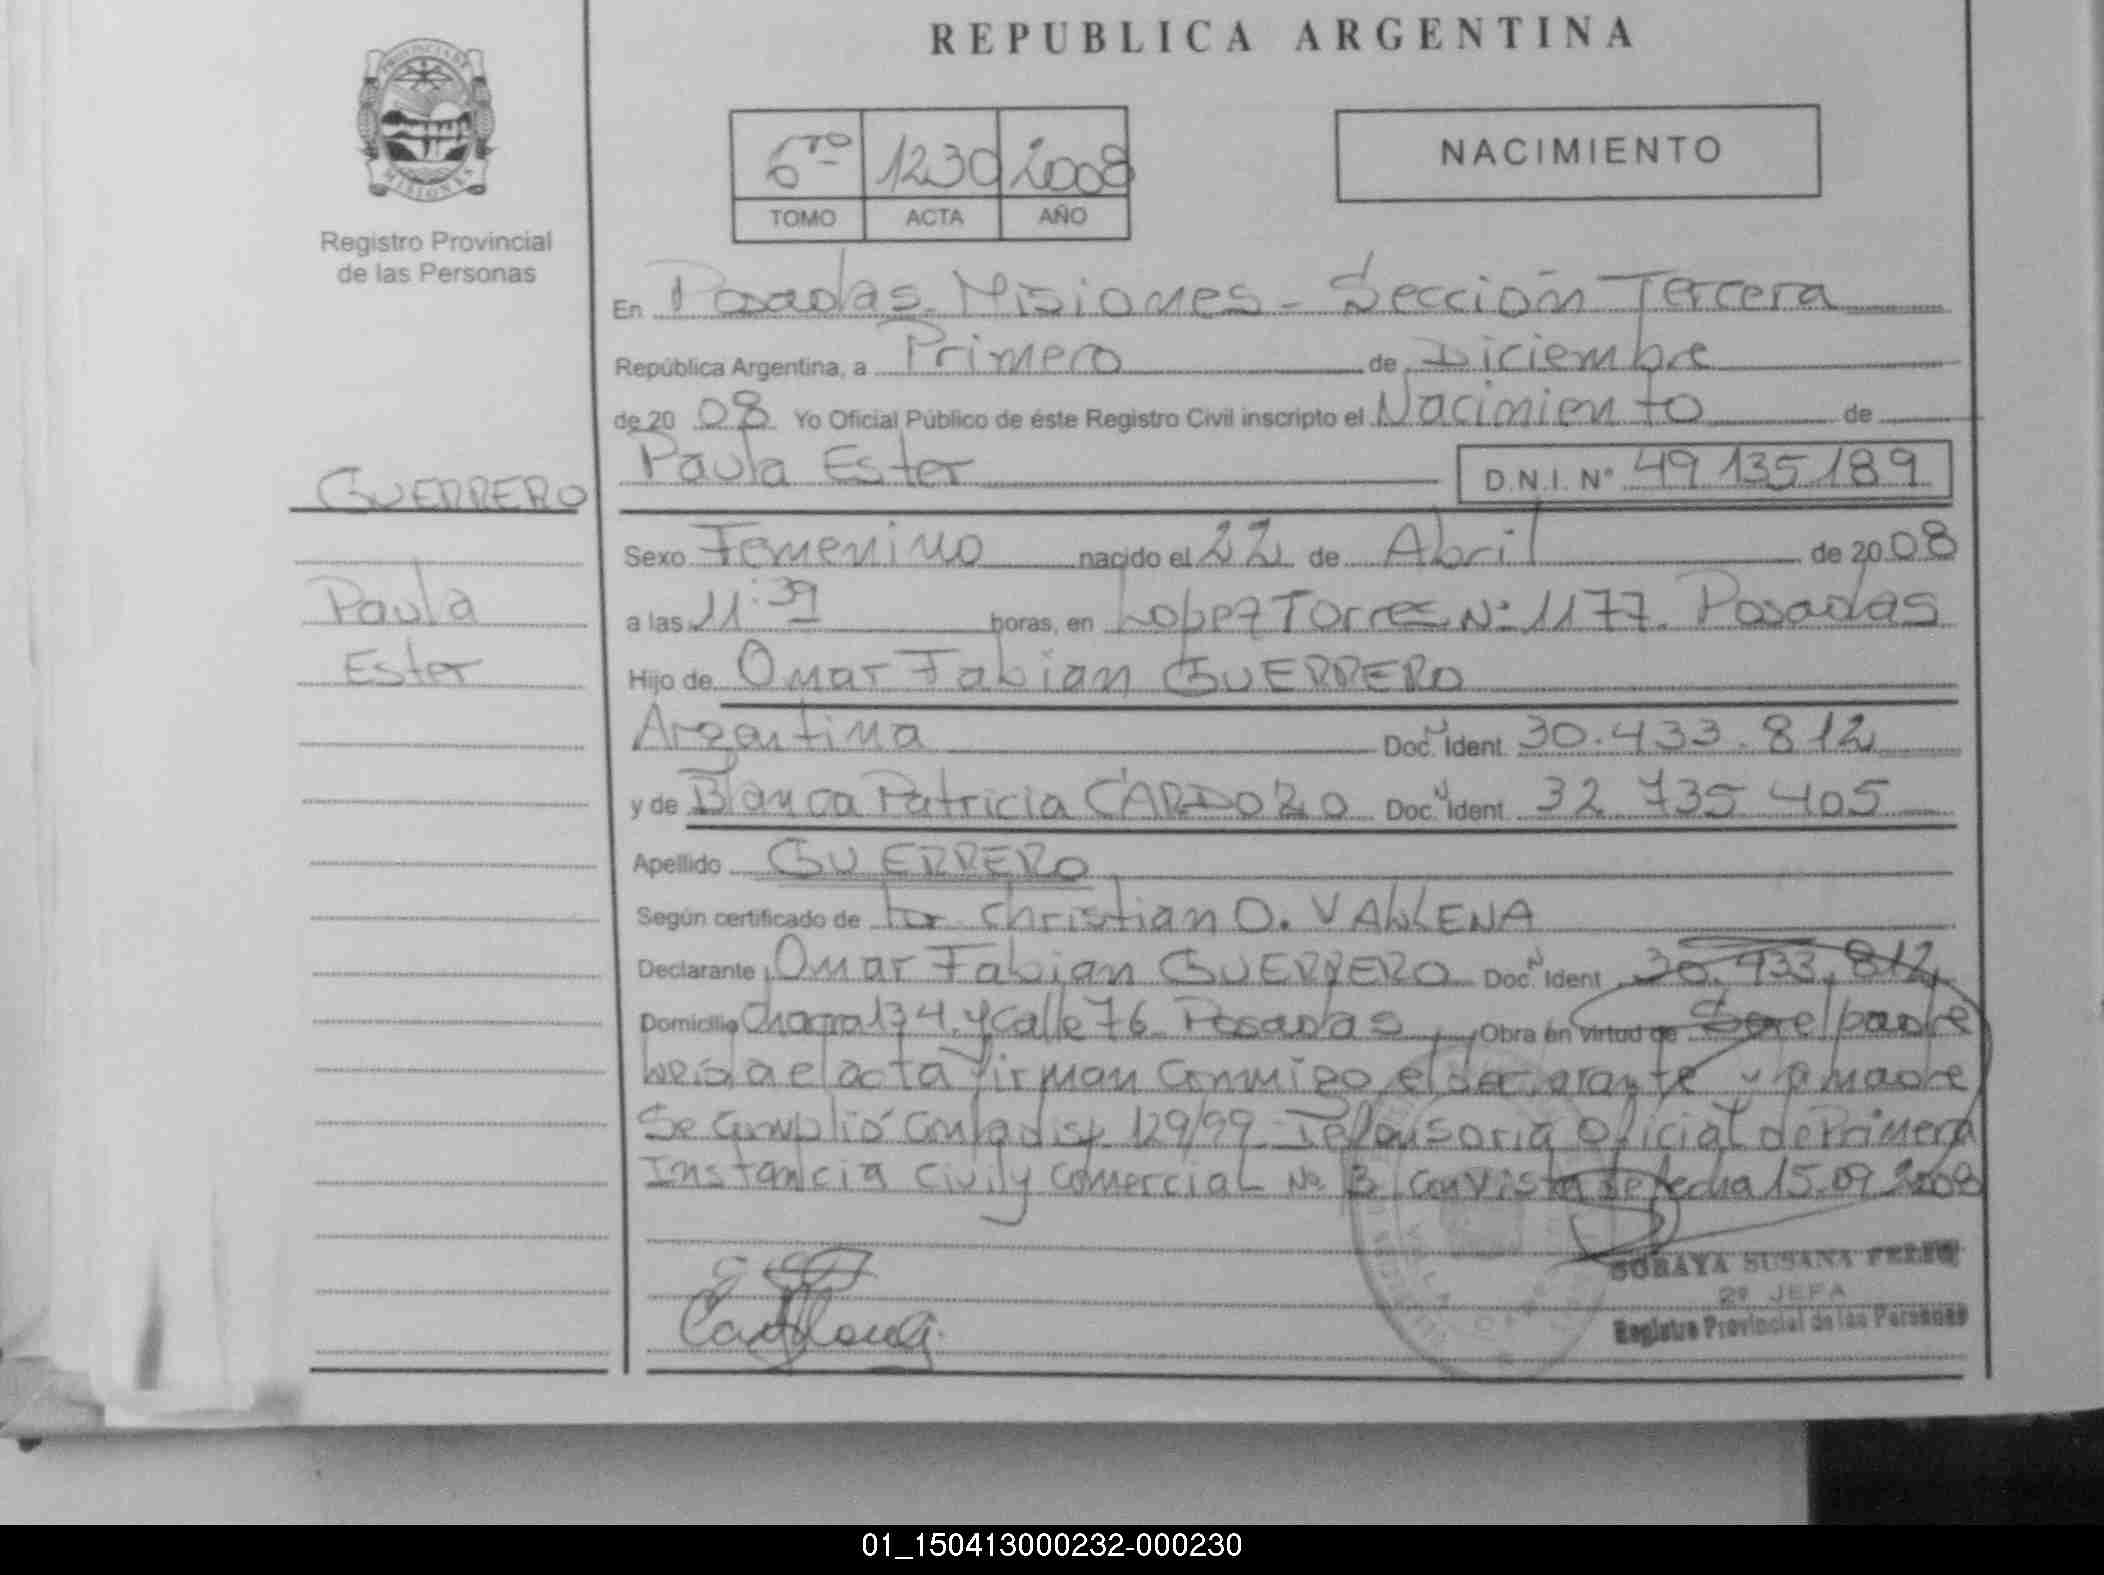 REPUBLICA ARGENTINA
PROVINCIA DE
MISIONES
Registro Provincial
de las Personas
6to 1230 2008
TOMO ACTA AÑO
NACIMIENTO
En Posadas Misiones - Sección Tercera
República Argentina, a Primero de Diciembre
de 20 08 Yo Oficial Público de éste Registro Civil inscripto el Nacimiento de
Paula Ester D.N.I. Nº 49 135 189
GUERRERO
Paula
Ester
Sexo Femenino nacido el 22 de Abril de 20 08
a las 11:39 horas, en Lopez Torres Nº 1177. Posadas
Hijo de Omar Fabian GUERRERO
Argentina Doc. Ident. 30.433.812
y de Blanca Patricia CARDOZO Doc. Ident. 32 735 405
Apellido GUERRERO
Según certificado de Christian O.
Declarante Omar Fabian GUERRERO Doc. Ident. 30.433.812
Domicilio Chacra 134 y Calle 76 Posadas Obra en virtud de Ser el padre
el acta firman conmigo el declarante y la madre
Se cumplió con la disp 129/99 Oficial de Primera
Instancia Civil y Comercial No. 3 con vista de fecha 15.09.2008
SORAYA SUSANA
2º JEFA
Registro Provincial de las Personas
01_150413000232-000230